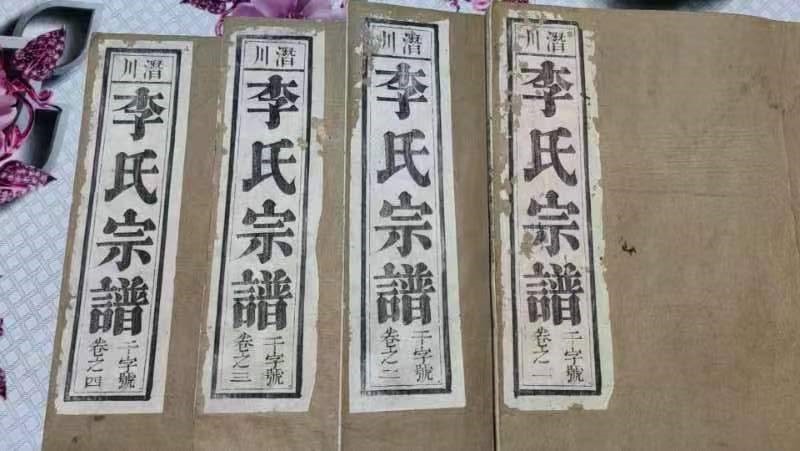 潛川
李氏宗譜
千字號
卷之一
潛川
李氏宗譜
千字號
卷之二
潛川
李氏宗譜
千字號
卷之三
潛川
李氏宗譜
千字號
卷之四